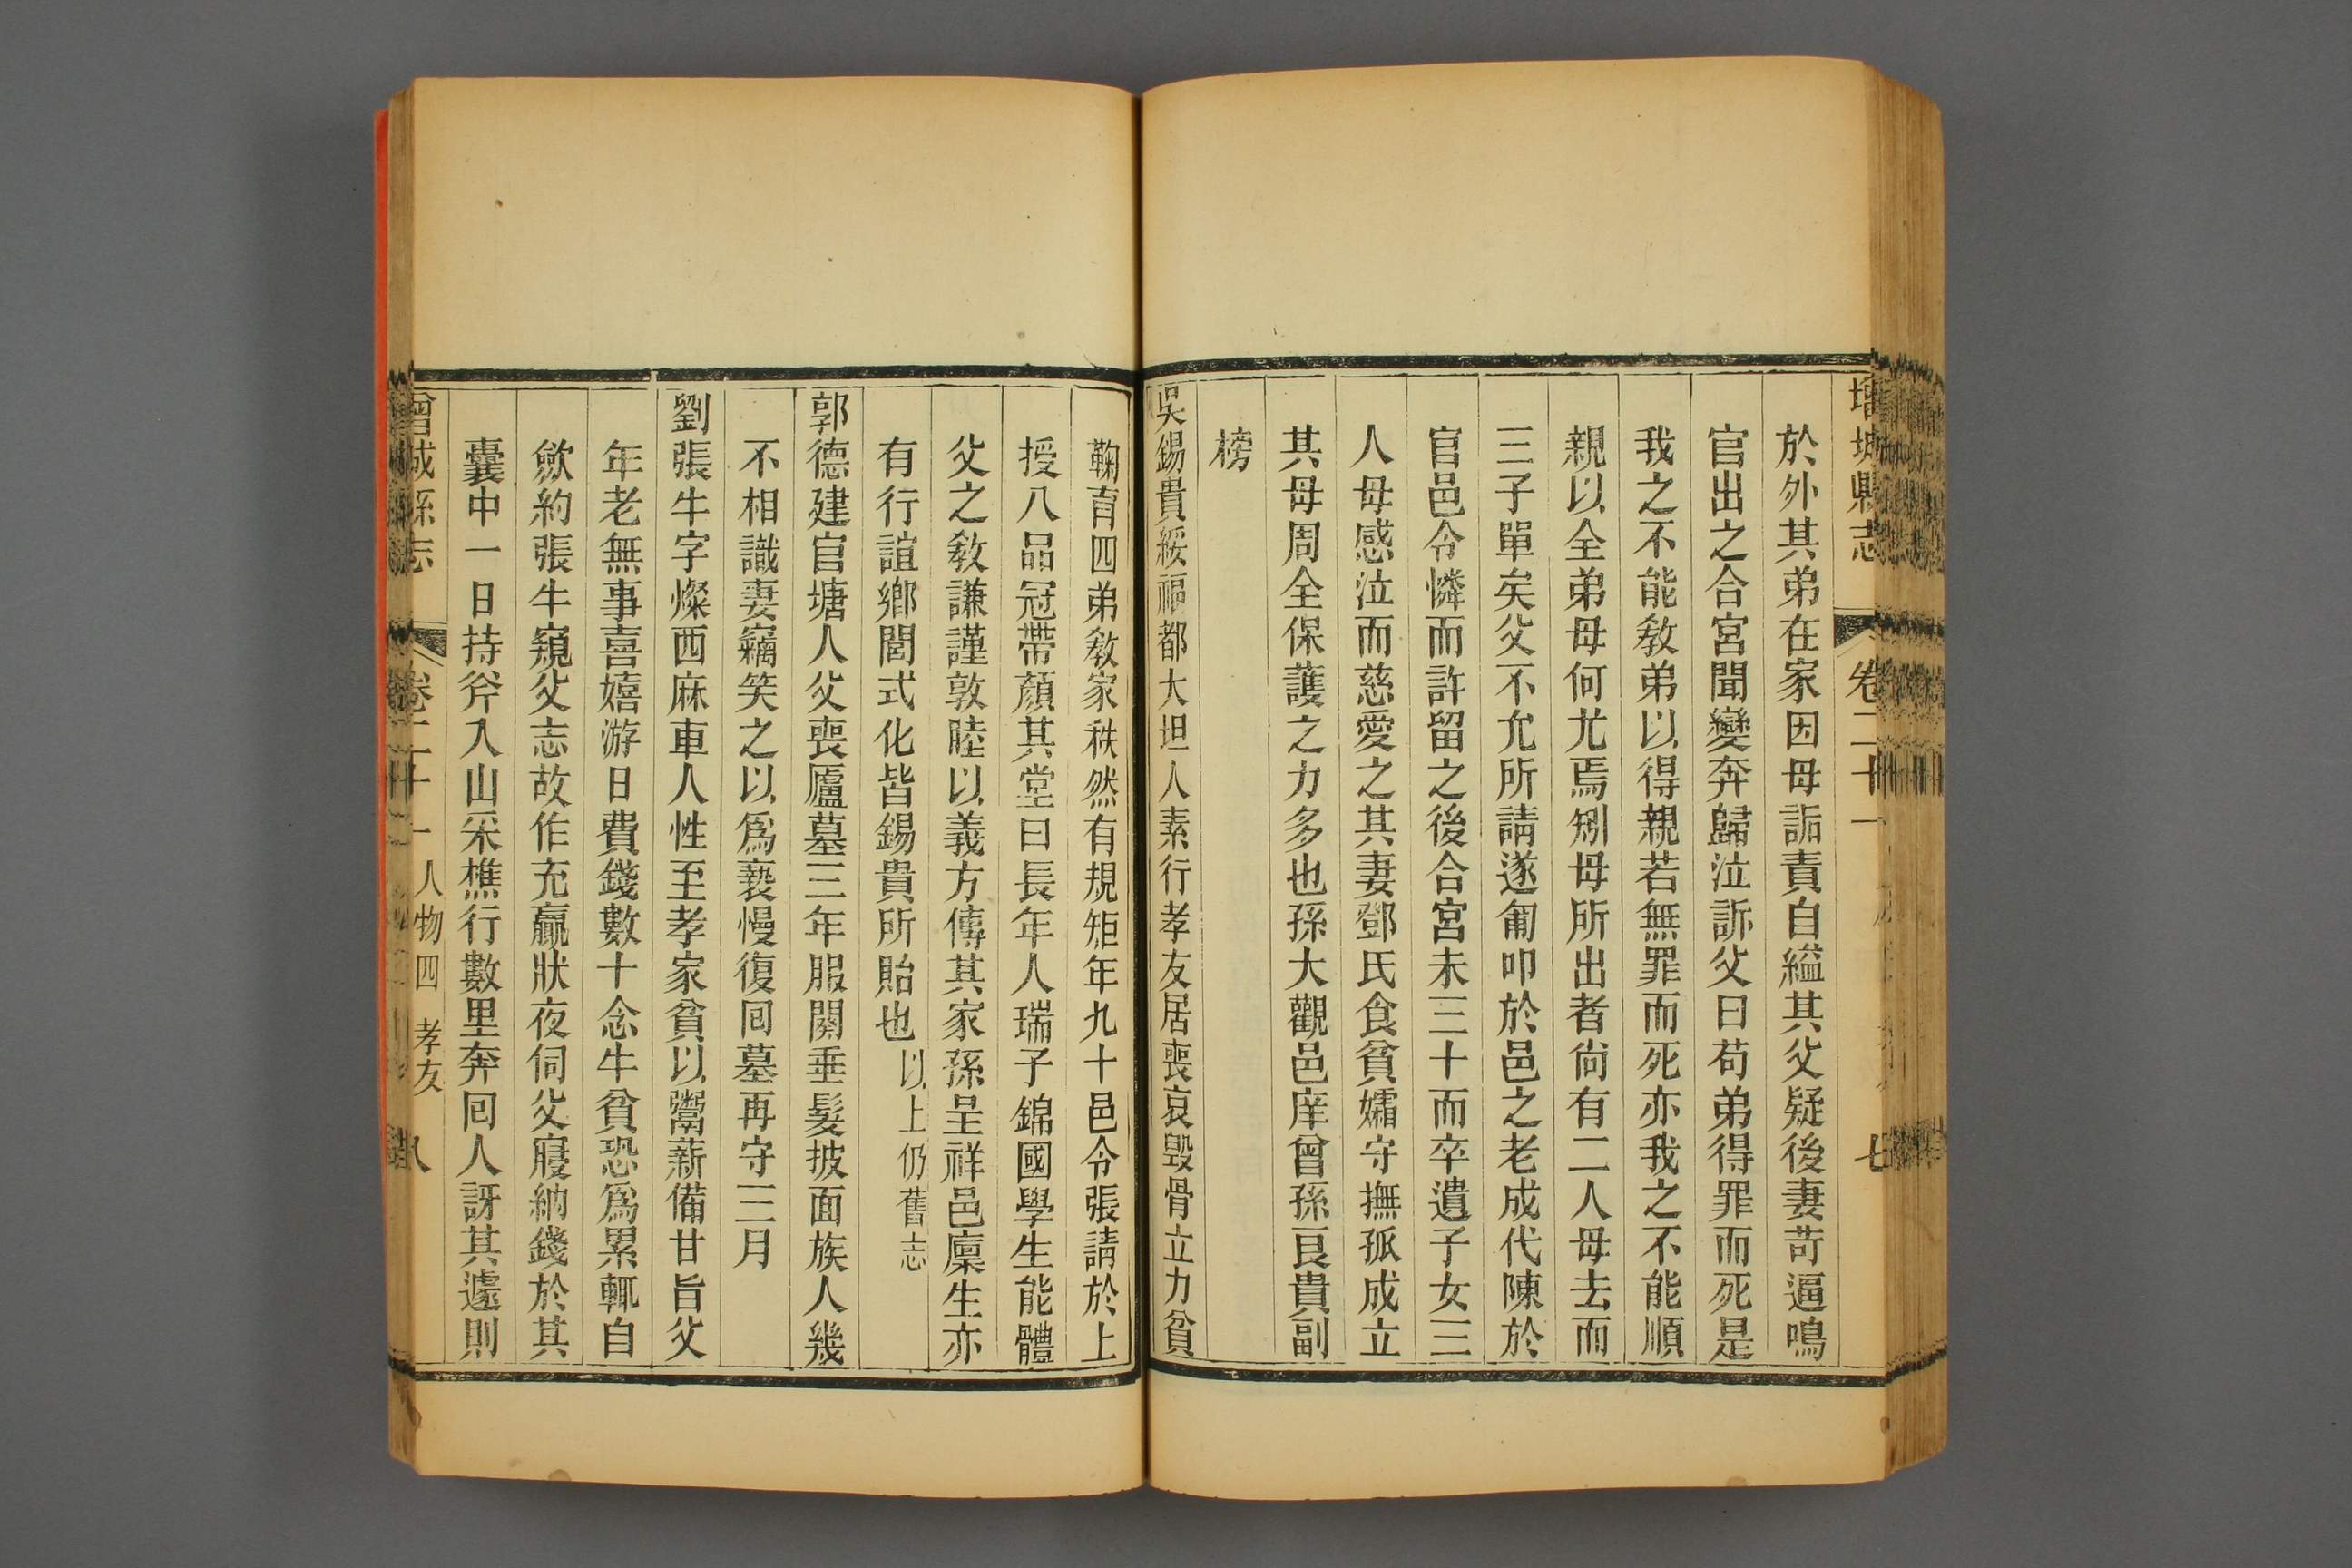 增城縣志 卷二十一 七
於外其弟在家因母詬責自縊其父疑後妻苛逼鳴
官出之合宮聞變奔歸泣訴父曰苟弟得罪而死是
我之不能敎弟以得親若無罪而死亦我之不能順
親以全弟母何尤焉矧母所出者尙有二人母去而
三子單矣父不允所請遂匍叩於邑之老成代陳於
官邑令憐而許留之後合宮未三十而卒遺子女三
人母感泣而慈愛之其妻鄧氏食貧孀守撫孤成立
其母周全保護之力多也孫大觀邑庠曾孫艮貴副
榜
吳錫貴綏福都大坦人素行孝友居喪哀毀骨立力貧
鞠育四弟敎家秩然有規矩年九十邑令張請於上
授八品冠帶顏其堂曰長年人瑞子錦國學生能體
父之敎謙謹敦睦以義方傳其家孫呈祥邑廩生亦
有行誼鄉閭式化皆錫貴所貽也以上仍舊志
郭德建官塘人父喪廬墓三年服闋垂髮披面族人幾
不相識妻竊笑之以爲褻慢復囘墓再守三月
劉張牛字燦西麻車人性至孝家貧以鬻薪備甘旨父
年老無事喜嬉游日費錢數十念牛貧恐爲累輒自
歛約張牛窺父志故作充贏狀夜伺父寢納錢於其
囊中一日持斧入山采樵行數里奔囘人訝其遽則
曾城縣志 卷二十一 人物四 孝友 八